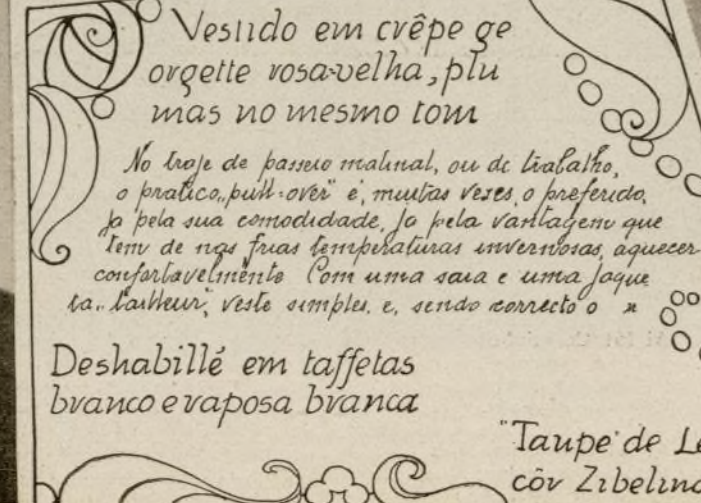 Vestido em crêpe ge
orgette rosa-velha, plu
mas no mesmo tom
No traje de passeio matinal, ou de trabalho,
o pratico „pull-over" é, muitas vezes, o preferido,
já pela sua comodidade, já pela vantagem que
tem de nas frias temperaturas invernosas, aquecer
confortavelmente Com uma saia e uma jaque
ta „tailleur", veste simples, e, sendo correcto o
Deshabillé em taffetas
branco e vaposa branca
"Taupe" de Le
côr Zibelina